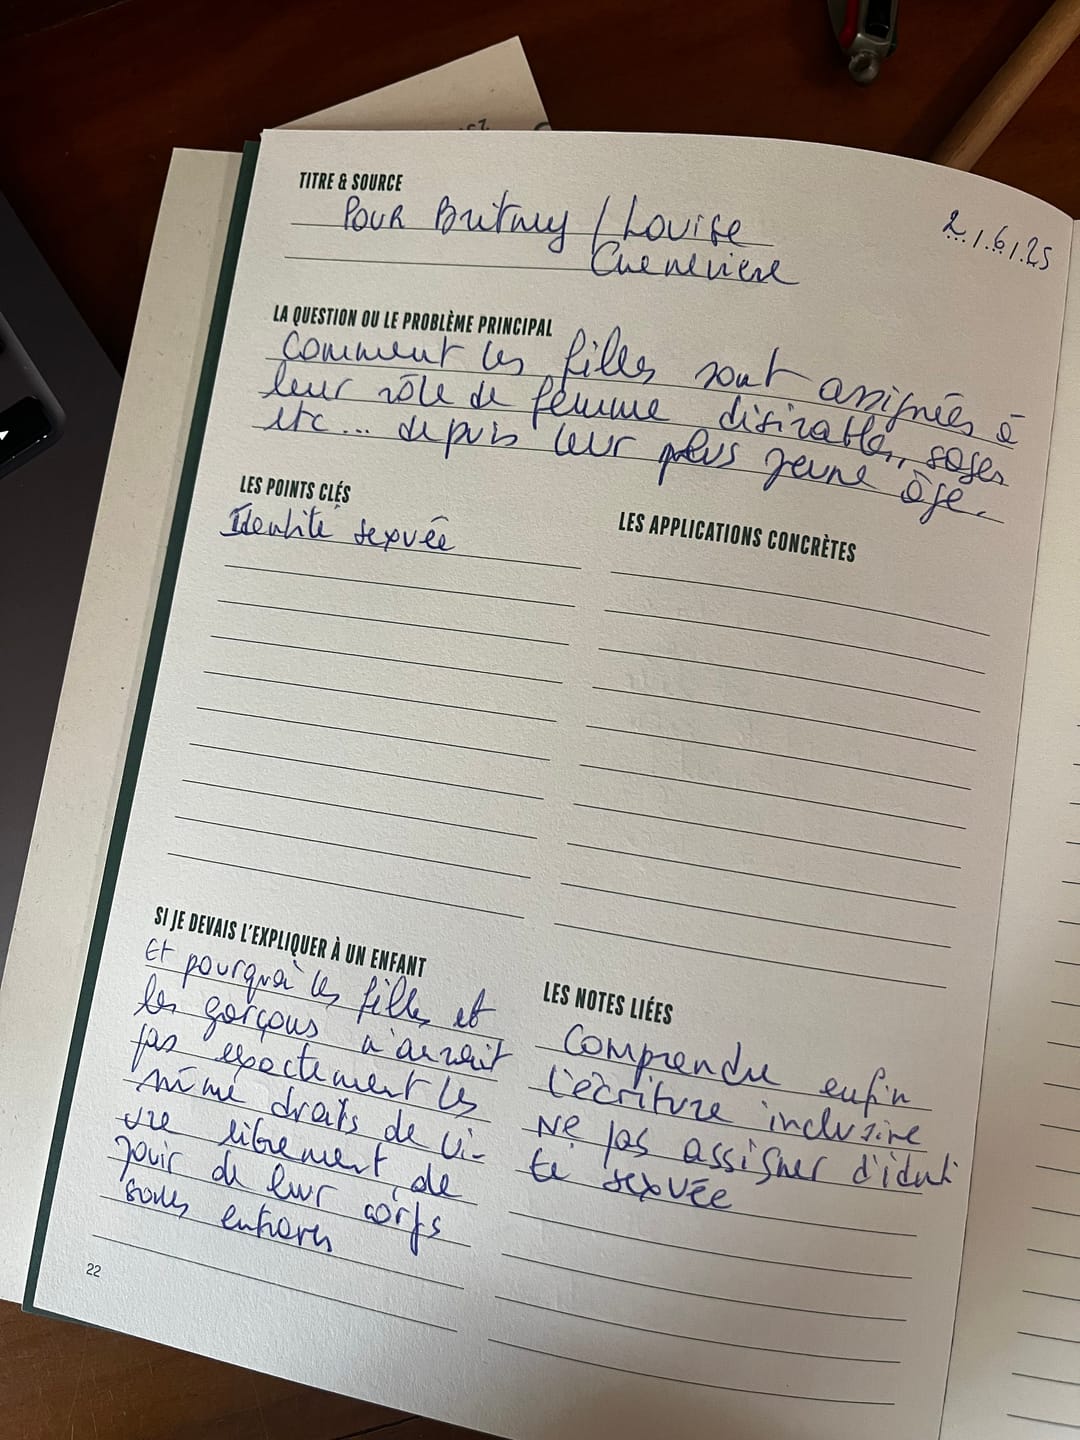 TITRE & SOURCE
POUR Britney / Louise
Chenevière
2.1.6.1.25
LA QUESTION OU LE PROBLÈME PRINCIPAL
Comment les filles sont assignées à
leur rôle de femme désirable, sages
etc... depuis leur plus jeune âge.
LES POINTS CLÉS
Identité sexuée
LES APPLICATIONS CONCRÈTES
SI JE DEVAIS L'EXPLIQUER À UN ENFANT
Et pourquoi les filles et
les garçons n'auraient
pas exactement les
même droits de vi-
vre librement, de
jouir de leur corps
sans entraves
LES NOTES LIÉES
Comprendre enfin
l'écriture inclusive
Ne pas assigner d'identi
té sexuée
22